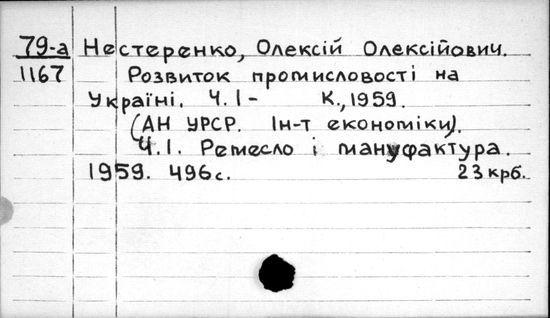 79-а Нестеренко, Олексій Олексійович.
1167 Розвиток промисловості на
Україні. Ч. I - К., 1959.
(АН УРСР. Ін-т економіки).
Ч. I. Ремесло і мануфактура.
1959. 496с. 23 крб.